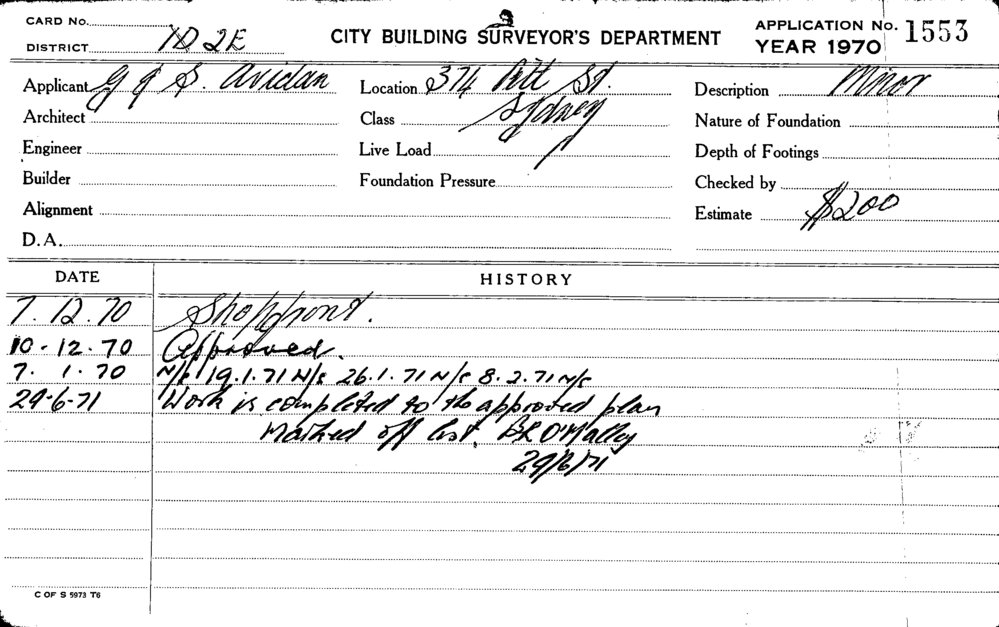 CARD No.
DISTRICT 1D 2E
CITY BUILDING SURVEYOR'S DEPARTMENT
APPLICATION No. 1553
YEAR 1970
Applicant G & S. Avidan
Location 374 Pitt St.
Description Minor
Architect
Class Sydney
Nature of Foundation
Engineer
Live Load
Depth of Footings
Builder
Foundation Pressure
Checked by
Alignment
Estimate $200
D.A.
DATE HISTORY
7.12.70 Shopfront.
10-12-70 Approved.
7.1.70 N/c 19.1.71 N/c 26.1.71 N/c 8.2.71 N/c
29-6-71 Work is completed to the approved plan
Marked off list. BR O'Malley
29/6/71
C OF S 5973 T6